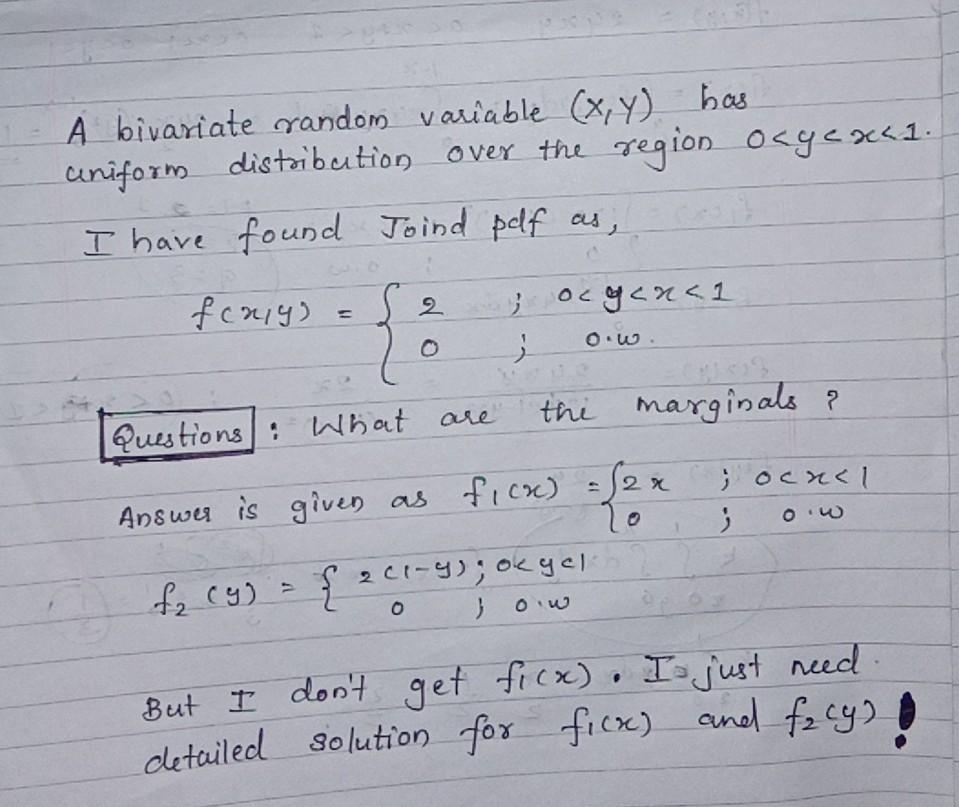 A bivariate random variable (X,Y) has
uniform distribution over the region 0<y<x<1.
I have found Joind pdf as,
f(x,y) = { 2 ; 0<y<x<1
0 ; o.w.
Questions : What are the marginals ?
Answer is given as f₁(x) = { 2x ; 0<x<1
0 ; o.w
f₂(y) = { 2(1-y) ; 0<y<1
0 ; o.w
But I don't get f₁(x). I just need
detailed solution for f₁(x) and f₂(y) !